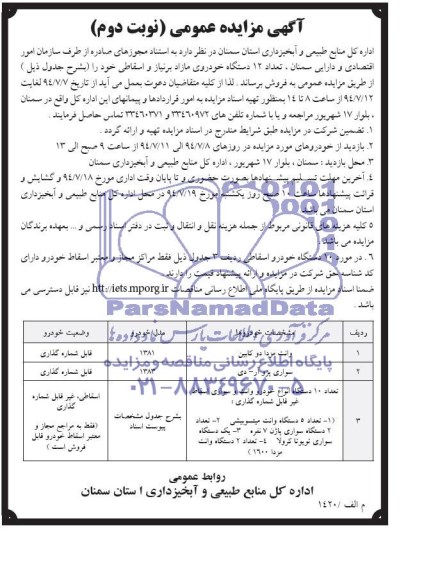 آگهی مزایده عمومی (نوبت دوم)
اداره کل منابع طبیعی و آبخیزداری استان سمنان در نظر دارد به استناد مجوزهای صادره از طرف سازمان امور
اقتصادی و دارایی سمنان ، تعداد ۱۲ دستگاه خودروی مازاد برنیاز و اسقاطی خود را (بشرح جدول ذیل )
از طریق مزایده عمومی به فروش برساند . لذا از کلیه متقاضیان دعوت بعمل می آید از تاریخ ۹۴/۷/۷ لغایت
۹۴/۷/۱۲ از ساعت ۸ تا ۱۴ بمنظور تهیه اسناد مزایده به امور قراردادها و پیمانهای این اداره کل واقع در سمنان
، بلوار ۱۷ شهریور مراجعه و یا با شماره تلفن های ۳۳۴۶۰۹۷۲ و ۳۳۴۶۰۳۷۱ تماس حاصل فرمایند .
۱. تضمین شرکت در مزایده طبق شرایط مندرج در اسناد مزایده تهیه و ارائه گردد .
۲. بازدید از خودروهای مورد مزایده در روزهای ۹۴/۷/۸ الی ۹۴/۷/۱۱ از ساعت ۹ صبح الی ۱۳
۳. محل بازدید : سمنان ، بلوار ۱۷ شهریور ، اداره کل منابع طبیعی و آبخیزداری سمنان
۴. آخرین مهلت تسلیم پیشنهادها بصورت حضوری و تا پایان وقت اداری مورخ ۹۴/۷/۱۸ و گشایش و
قرائت پیشنهادها ساعت ۱۰ صبح روز یکشنبه مورخ ۹۴/۷/۱۹ در محل اداره کل منابع طبیعی و آبخیزداری
استان سمنان می باشد .
۵ کلیه هزینه های قانونی مربوط از جمله هزینه نقل و انتقال و ثبت در دفتر اسناد رسمی و ... بعهده برندگان
مزایده می باشد .
۶ . در مورد ۱۰ دستگاه خودرو اسقاطی ردیف ۳ جدول ذیل فقط مراکز مجاز و معتبر اسقاط خودرو دارای
کد شناسه حق شرکت در مزایده و ارائه پیشنهاد قیمت را دارند .
ضمنا اسناد مزایده از طریق پایگاه ملی اطلاع رسانی مناقصات http://iets.mporg.ir نیز قابل دسترسی می
باشد .
ParsNamadData
مرکز فرآوری اطلاعات پارس نماد داده ها
پایگاه اطلاع رسانی مناقصه و مزایده
۰۲۱-۸۸۳۴۹۶۷۰-۵
ردیف مشخصات خودروها مدل خودرو وضعیت خودرو
۱ وانت مزدا دو کابین ۱۳۸۱ قابل شماره گذاری
۲ سواری پژو آر- دی ۱۳۸۳ قابل شماره گذاری
۳ تعداد ۱۰ دستگاه انواع خودرو وانت و سواری اسقاط
غیر قابل شماره گذاری :
(۱- تعداد ۵ دستگاه وانت میتسوبیشی ۲- تعداد
۲ دستگاه سواری پاژن ۷ نفره ۳- یک دستگاه
سواری تویوتا کرولا ۴- تعداد ۲ دستگاه وانت
مزدا ۱۶۰۰ )
بشرح جدول مشخصات
پیوست اسناد
اسقاطی، غیر قابل شماره
گذاری
(فقط به مراجع مجاز و
معتبر اسقاط خودرو قابل
فروش است )
روابط عمومی
اداره کل منابع طبیعی و آبخیزداری استان سمنان
م الف /۱۴۲۰